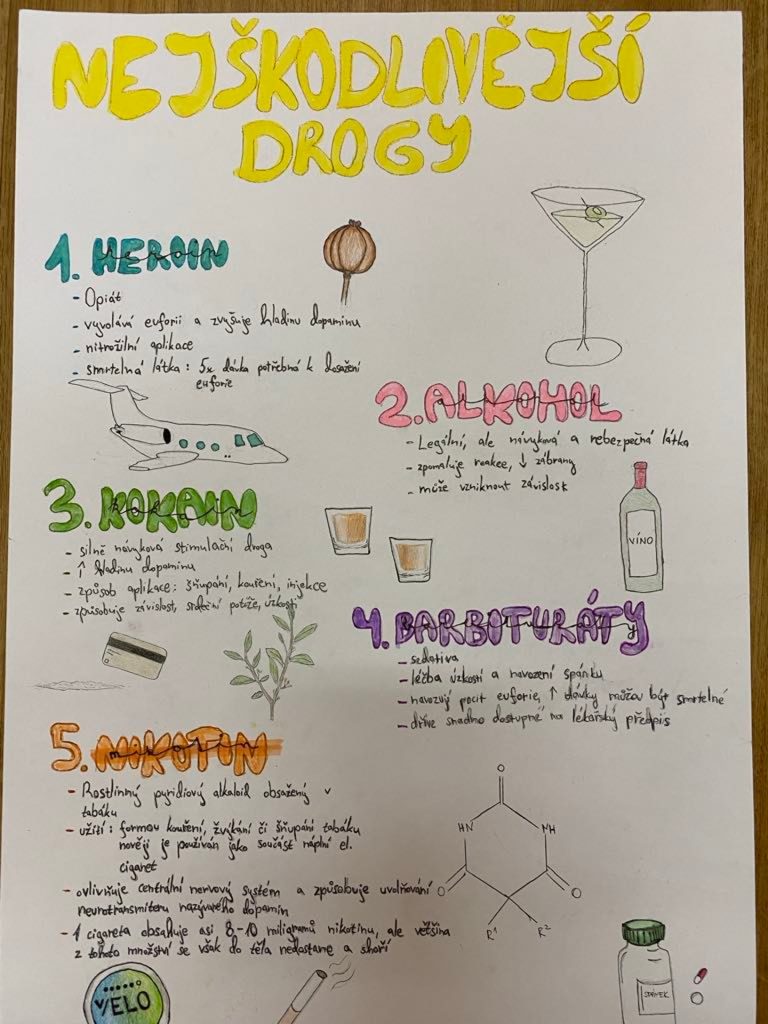 NEJŠKODLIVĚJŠÍ
DROGY
1. HEROIN
- Opiát
- vyvolává euforii a zvyšuje hladinu dopaminu
- nitrožilní aplikace
- smrtelná látka: 5x dávka potřebná k dosažení
euforie
2. ALKOHOL
- Legální, ale návyková a nebezpečná látka
- zpomaluje reakce, ↓ zábrany
- může vzniknout závislost
VÍNO
3. KOKAIN
- silně návyková stimulační droga
- ↑ hladinu dopaminu
- způsob aplikace: šňupání, kouření, injekce
- způsobuje závislost, srdeční potíže, úzkosti
4. BARBITURÁTY
- sedativa
- léčba úzkostí a navození spánku
- navozují pocit euforie, ↑ dávky můžou být smrtelné
- dříve snadno dostupné na lékařský předpis
5. NIKOTIN
- Rostlinný pyridiový alkaloid obsažený v
tabáku
- užití: formou kouření, žvýkání či šňupání tabáku
nověji je používán jako součást náplní el.
cigaret
- ovlivňuje centrální nervový systém a způsobuje uvolňování
neurotransmiteru nazývaného dopamin
- 1 cigareta obsahuje asi 8-10 miligramů nikotinu, ale většina
z tohoto množství se však do těla nedostane a shoří
O
HN NH
O O
R¹ R²
VELO
SPÁNEK